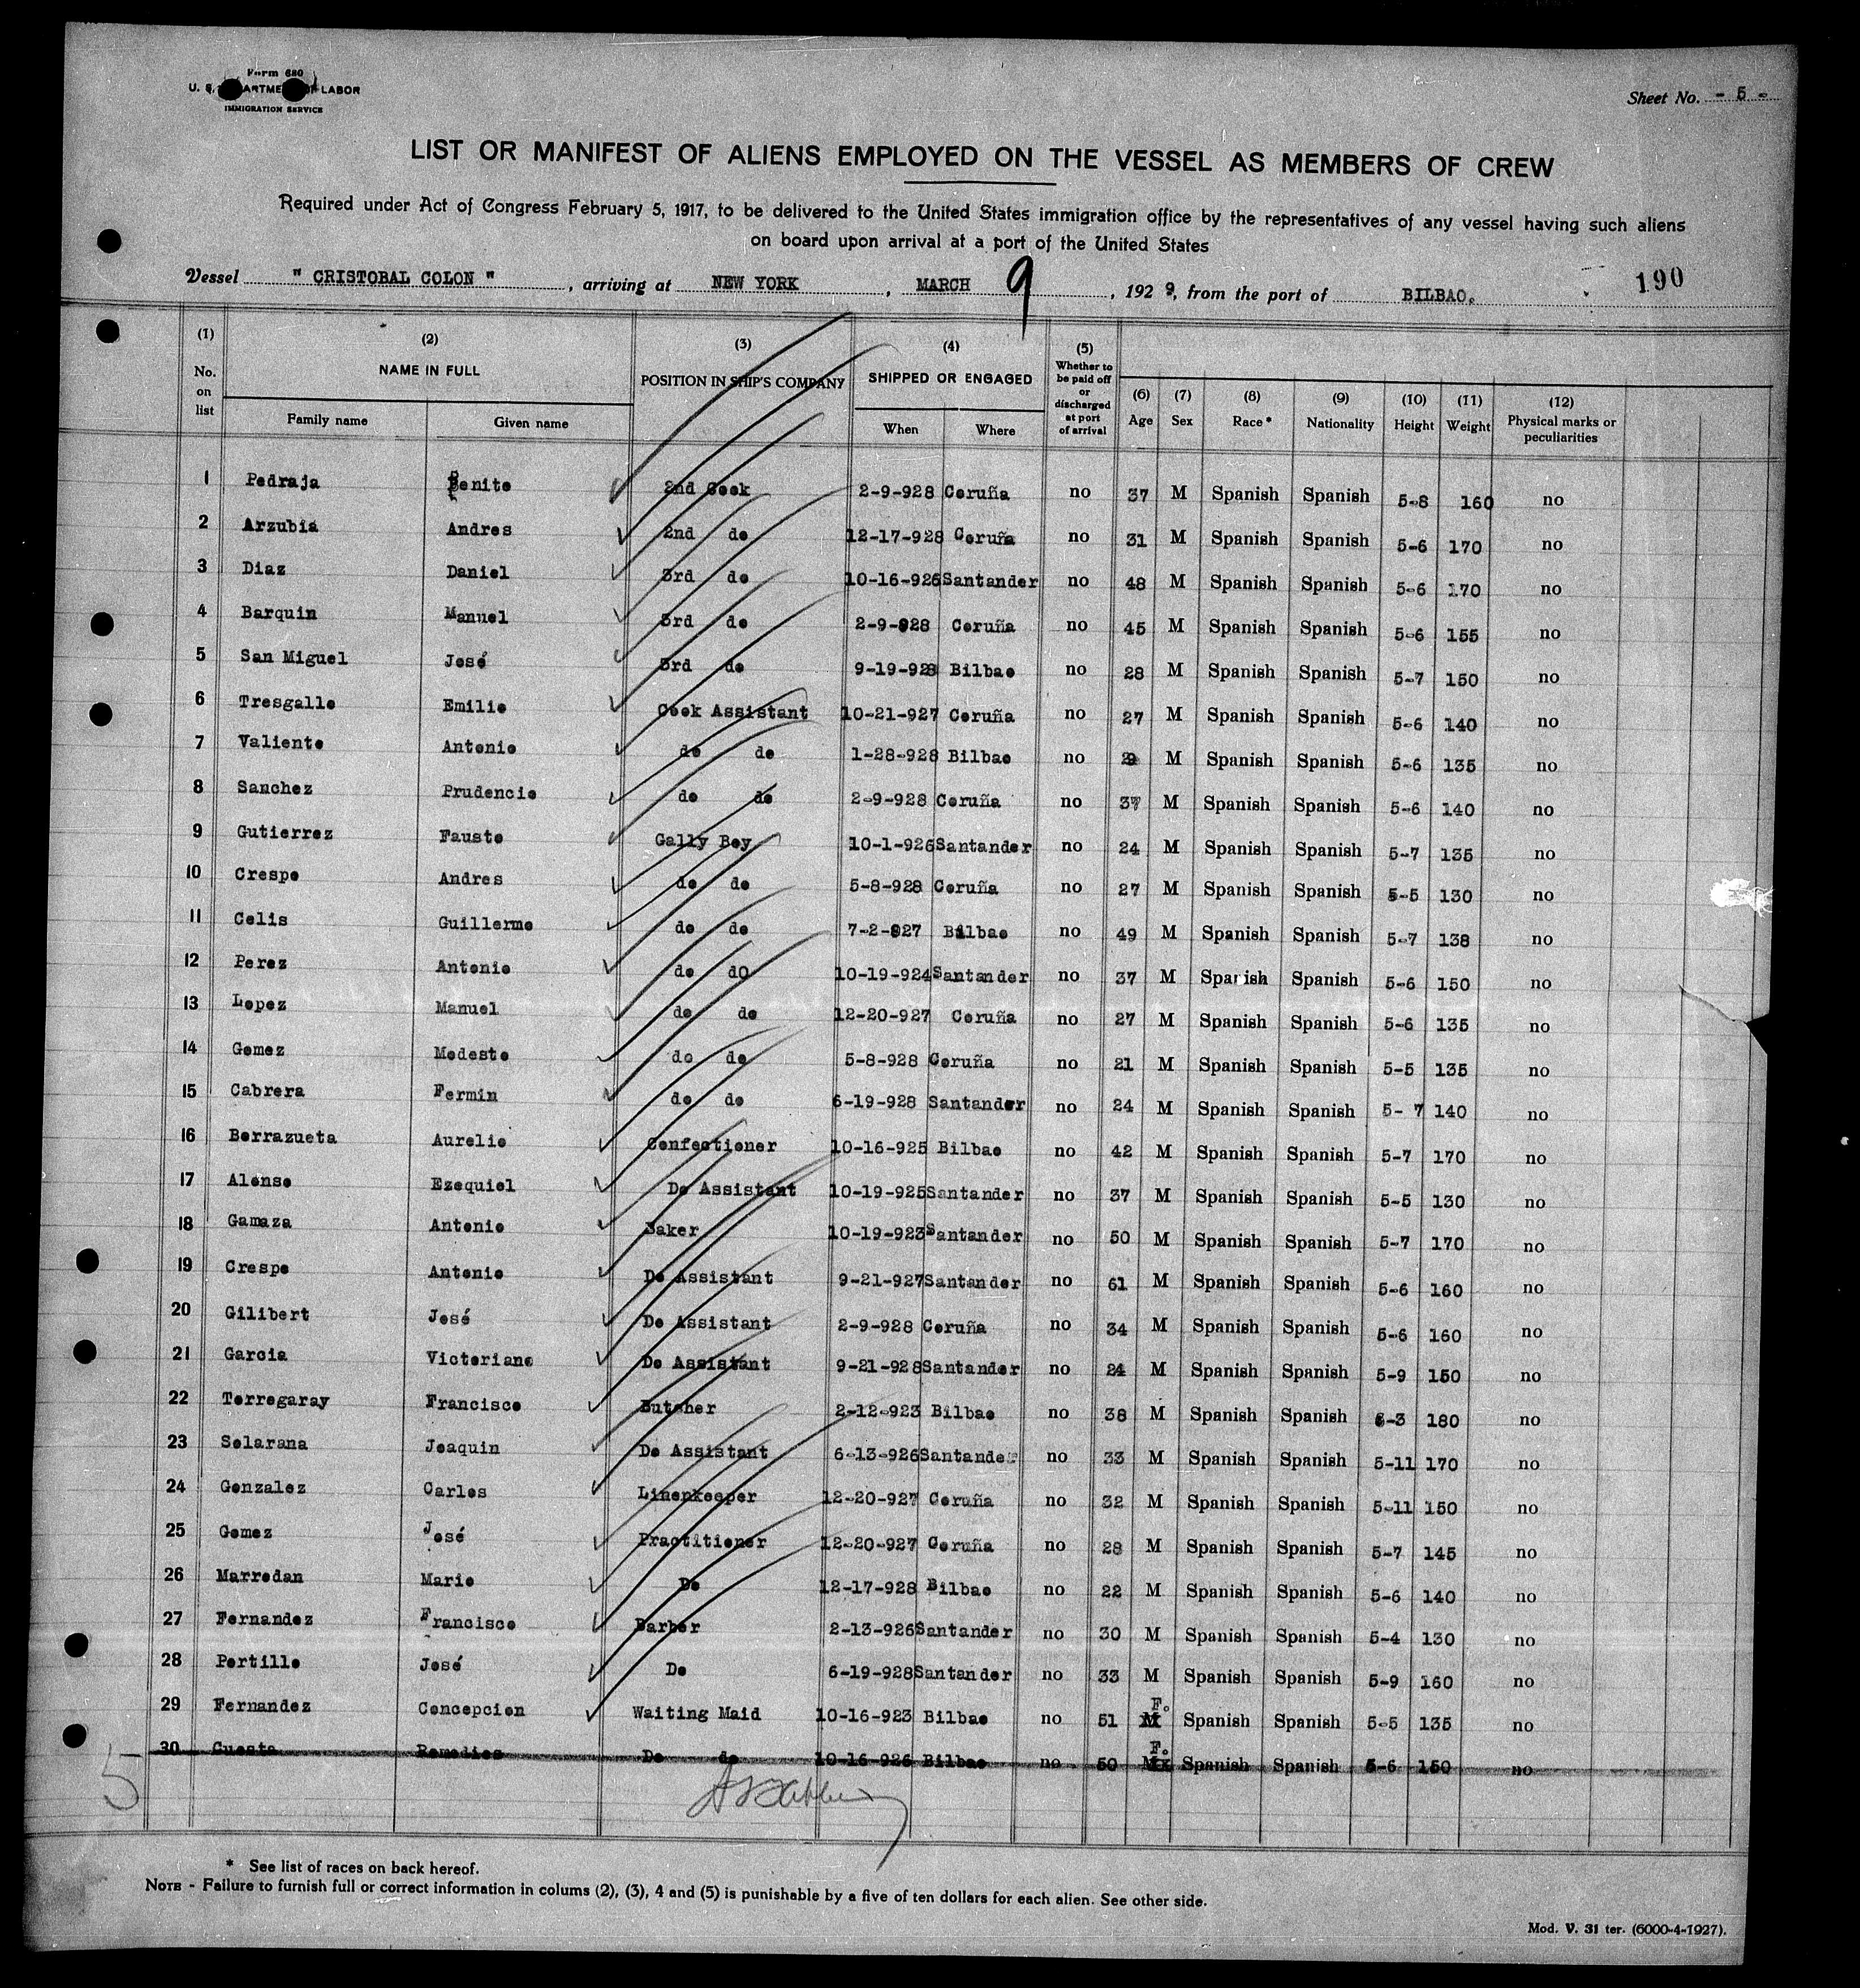 Form 680
U. S. DEPARTMENT OF LABOR
IMMIGRATION SERVICE
Sheet No. - 5 -
LIST OR MANIFEST OF ALIENS EMPLOYED ON THE VESSEL AS MEMBERS OF CREW
Required under Act of Congress February 5, 1917, to be delivered to the United States immigration office by the representatives of any vessel having such aliens
on board upon arrival at a port of the United States
Vessel " CRISTOBAL COLON ", arriving at NEW YORK, MARCH 9, 1929, from the port of BILBAO. 190
(1) No. on list (2) NAME IN FULL Family name Given name (3) POSITION IN SHIP'S COMPANY (4) SHIPPED OR ENGAGED When Where (5) Whether to be paid off or discharged at port of arrival (6) Age (7) Sex (8) Race * (9) Nationality (10) Height (11) Weight (12) Physical marks or peculiarities
1 Pedraja Benito 2nd Cook 2-9-928 Coruña no 37 M Spanish Spanish 5-8 160 no
2 Arzubia Andres 2nd do 12-17-928 Coruña no 31 M Spanish Spanish 5-6 170 no
3 Diaz Daniel 3rd do 10-16-926 Santander no 48 M Spanish Spanish 5-6 170 no
4 Barquin Manuel 3rd do 2-9-928 Coruña no 45 M Spanish Spanish 5-6 155 no
5 San Miguel José 3rd do 9-19-928 Bilbao no 28 M Spanish Spanish 5-7 150 no
6 Tresgallo Emilio Cook Assistant 10-21-927 Coruña no 27 M Spanish Spanish 5-6 140 no
7 Valiente Antonio do do 1-28-928 Bilbao no M Spanish Spanish 5-6 135 no
8 Sanchez Prudencio do do 2-9-928 Coruña no 37 M Spanish Spanish 5-6 140 no
9 Gutierrez Fausto Gally Boy 10-1-926 Santander no 24 M Spanish Spanish 5-7 135 no
10 Crespo Andres do do 5-8-928 Coruña no 27 M Spanish Spanish 5-5 130 no
11 Celis Guillermo do do 7-2-927 Bilbao no 49 M Spanish Spanish 5-7 138 no
12 Perez Antonio do dO 10-19-924 Santander no 37 M Spanish Spanish 5-6 150 no
13 Lopez Manuel do do 12-20-927 Coruña no 27 M Spanish Spanish 5-6 135 no
14 Gomez Modesto do do 5-8-928 Coruña no 21 M Spanish Spanish 5-5 135 no
15 Cabrera Fermin do do 6-19-928 Santander no 24 M Spanish Spanish 5- 7 140 no
16 Borrazueta Aurelio Confectioner 10-16-925 Bilbao no 42 M Spanish Spanish 5-7 170 no
17 Alonso Ezequiel Do Assistant 10-19-925 Santander no 37 M Spanish Spanish 5-5 130 no
18 Gamaza Antonio Baker 10-19-923 Santander no 50 M Spanish Spanish 5-7 170 no
19 Crespo Antonio Do Assistant 9-21-927 Santander no 61 M Spanish Spanish 5-6 160 no
20 Gilibert José Do Assistant 2-9-928 Coruña no 34 M Spanish Spanish 5-6 160 no
21 Garcia Victoriano Do Assistant 9-21-928 Santander no 24 M Spanish Spanish 5-9 150 no
22 Torregaray Francisco Butcher 2-12-923 Bilbao no 38 M Spanish Spanish 6-3 180 no
23 Solarana Joaquin Do Assistant 6-13-926 Santander no 33 M Spanish Spanish 5-11 170 no
24 Gonzalez Carlos Linenkeeper 12-20-927 Coruña no 32 M Spanish Spanish 5-11 150 no
25 Gomez José Practitioner 12-20-927 Coruña no 28 M Spanish Spanish 5-7 145 no
26 Marrodan Mario Do 12-17-928 Bilbao no 22 M Spanish Spanish 5-6 140 no
27 Fernandez Francisco Barber 2-13-926 Santander no 30 M Spanish Spanish 5-4 130 no
28 Portillo José Do 6-19-928 Santander no 33 M Spanish Spanish 5-9 160 no
29 Fernandez Concepcion Waiting Maid 10-16-923 Bilbao no 51 F. M Spanish Spanish 5-5 135 no
30 Cuesta Remedios Do do 10-16-926 Bilbao no 50 F. Mx Spanish Spanish 5-6 150 no
5
* See list of races on back hereof.
NOTE - Failure to furnish full or correct information in colums (2), (3), 4 and (5) is punishable by a five of ten dollars for each alien. See other side.
Mod. V. 31 ter. (6000-4-1927).